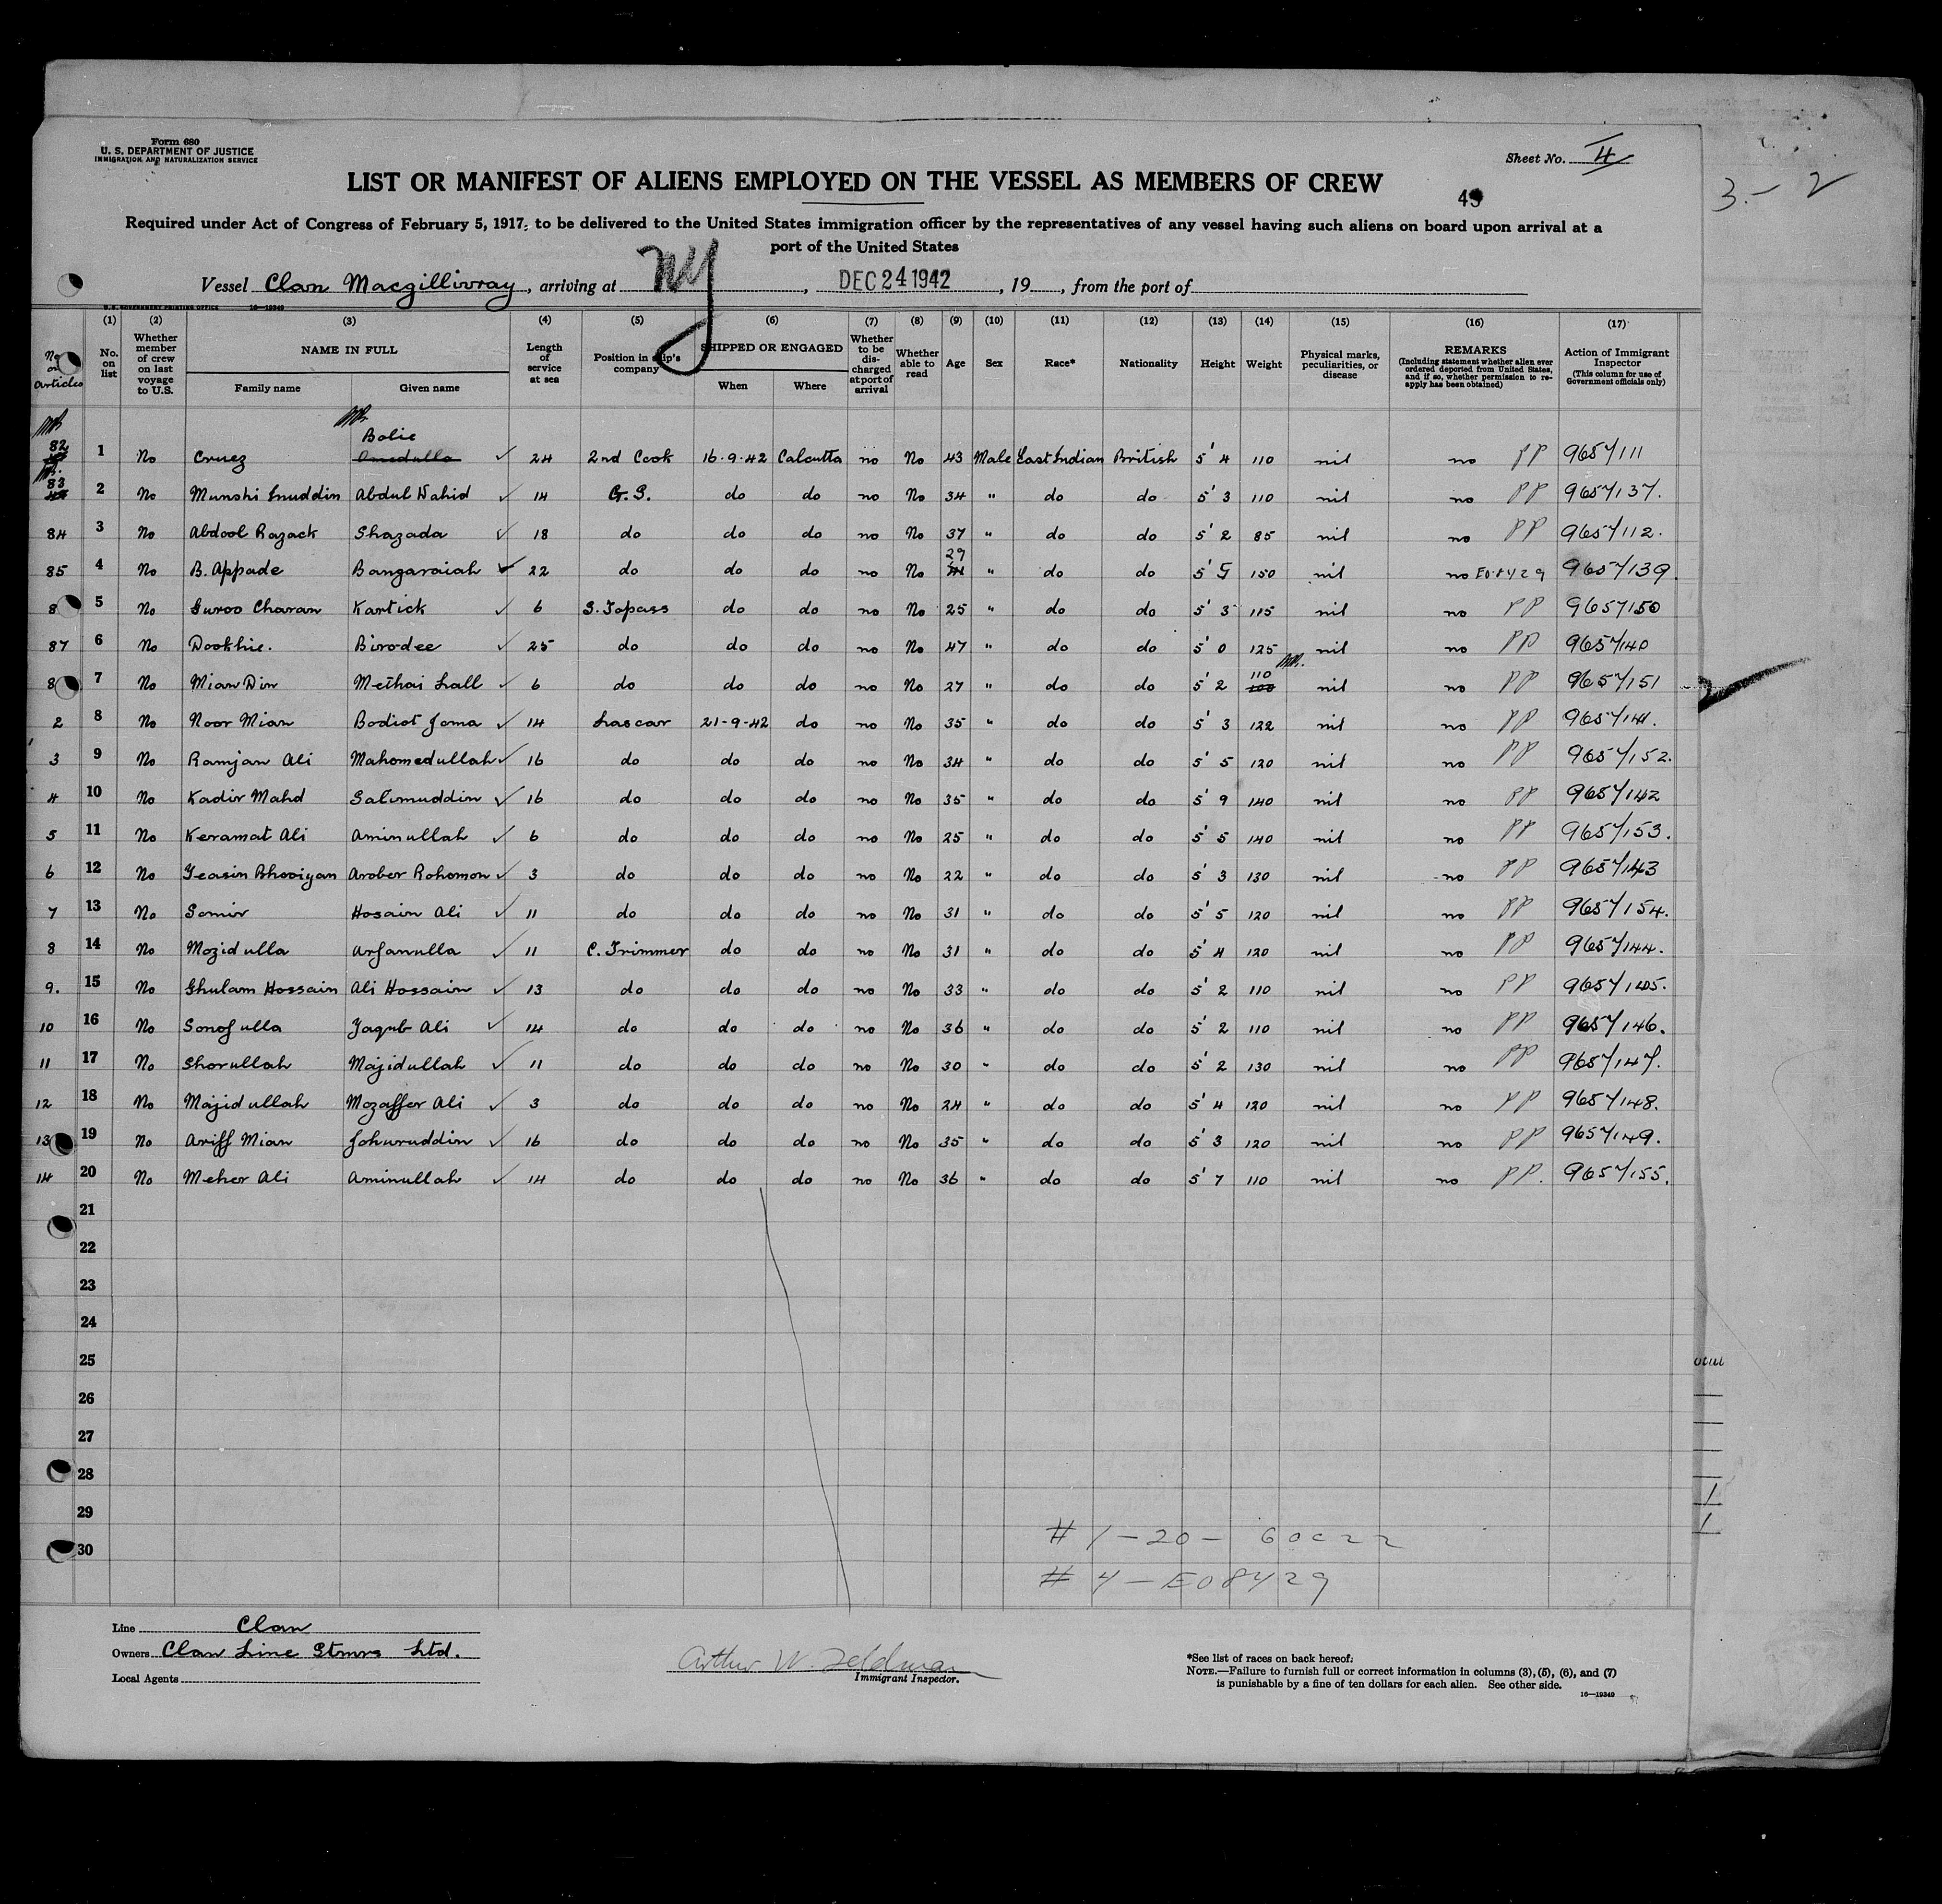 Form 680
U. S. DEPARTMENT OF JUSTICE
IMMIGRATION AND NATURALIZATION SERVICE
Sheet No. 4
3 - 2
LIST OR MANIFEST OF ALIENS EMPLOYED ON THE VESSEL AS MEMBERS OF CREW
Required under Act of Congress of February 5, 1917, to be delivered to the United States immigration officer by the representatives of any vessel having such aliens on board upon arrival at a
port of the United States
Vessel Clan Macgillivray, arriving at NY, DEC 24 1942, 19, from the port of
U. S. GOVERNMENT PRINTING OFFICE 16—19349
(1) (2) (3) (4) (5) (6) (7) (8) (9) (10) (11) (12) (13) (14) (15) (16) (17)
No. on articles
No. on list
Whether member of crew on last voyage to U.S.
NAME IN FULL
Family name Given name
Length of service at sea
Position in ship's company
SHIPPED OR ENGAGED
When Where
Whether to be discharged at port of arrival
Whether able to read
Age
Sex
Race*
Nationality
Height
Weight
Physical marks, peculiarities, or disease
REMARKS
(Including statement whether alien ever ordered deported from United States, and if so, whether permission to reapply has been obtained)
Action of Immigrant Inspector
(This column for use of Government officials only)
82 1 No Cruez Bolie Omedulla ✓ 24 2nd Cook 16-9-42 Calcutta no No 43 Male East Indian British 5' 4 110 nil no PP 9657/111
83 2 No Munshi Inuddin Abdul Wahid ✓ 14 G. S. do do no No 34 " do do 5' 3 110 nil no PP 9657/137.
84 3 No Abdool Razack Shazada ✓ 18 do do do no No 37 " do do 5' 2 85 nil no PP 9657/112.
85 4 No B. Appade Bangaraiah ✓ 22 do do do no No 29 " do do 5' 5 150 nil no E08429 9657/139.
8 5 No Guroo Charan Kartick ✓ 6 S. Topass do do no No 25 " do do 5' 3 115 nil no PP 9657/150
87 6 No Dookhie. Birodee ✓ 25 do do do no No 47 " do do 5' 0 125 nil no PP 9657/140
8 7 No Mian Din Methai Lall ✓ 6 do do do no No 27 " do do 5' 2 110 100 nil no PP 9657/151
2 8 No Noor Mian Bodiot Joma ✓ 14 Lascar 21-9-42 do no No 35 " do do 5' 3 122 nil no PP 9657/141.
3 9 No Ramjan Ali Mahomedullah ✓ 16 do do do no No 34 " do do 5' 5 120 nil no PP 9657/152.
4 10 No Kadir Mahd Salimuddin ✓ 16 do do do no No 35 " do do 5' 9 140 nil no PP 9657/142
5 11 No Keramat Ali Aminullah ✓ 6 do do do no No 25 " do do 5' 5 140 nil no PP 9657/153.
6 12 No Yeasin Bhooiyan Arober Rohomon ✓ 3 do do do no No 22 " do do 5' 3 130 nil no PP 9657/143
7 13 No Samir Hosain Ali ✓ 11 do do do no No 31 " do do 5' 5 120 nil no PP 9657/154.
8 14 No Mozidulla Arfanulla ✓ 11 C. Trimmer do do no No 31 " do do 5' 4 120 nil no PP 9657/144.
9. 15 No Ghulam Hossain Ali Hossain ✓ 13 do do do no No 33 " do do 5' 2 110 nil no PP 9657/145.
10 16 No Sonofulla Yaqub Ali ✓ 14 do do do no No 36 " do do 5' 2 110 nil no PP 9657/146.
11 17 No Shorullah Majidullah ✓ 11 do do do no No 30 " do do 5' 2 130 nil no PP 9657/147.
12 18 No Majidullah Mozaffer Ali ✓ 3 do do do no No 24 " do do 5' 4 120 nil no PP 9657/148.
13 19 No Ariff Mian Johuruddin ✓ 16 do do do no No 35 " do do 5' 3 120 nil no PP 9657/149.
14 20 No Meher Ali Aminullah ✓ 14 do do do no No 36 " do do 5' 7 110 nil no PP. 9657/155.
21
22
23
24
25
26
27
28
29
30
# 1-20-
# 4-E08429
Line Clan
Owners Clan Line Stmrs Ltd.
Local Agents
Arthur W. Feldman
Immigrant Inspector.
*See list of races on back hereof.
NOTE.—Failure to furnish full or correct information in columns (3), (5), (6), and (7)
is punishable by a fine of ten dollars for each alien. See other side.
16—19349